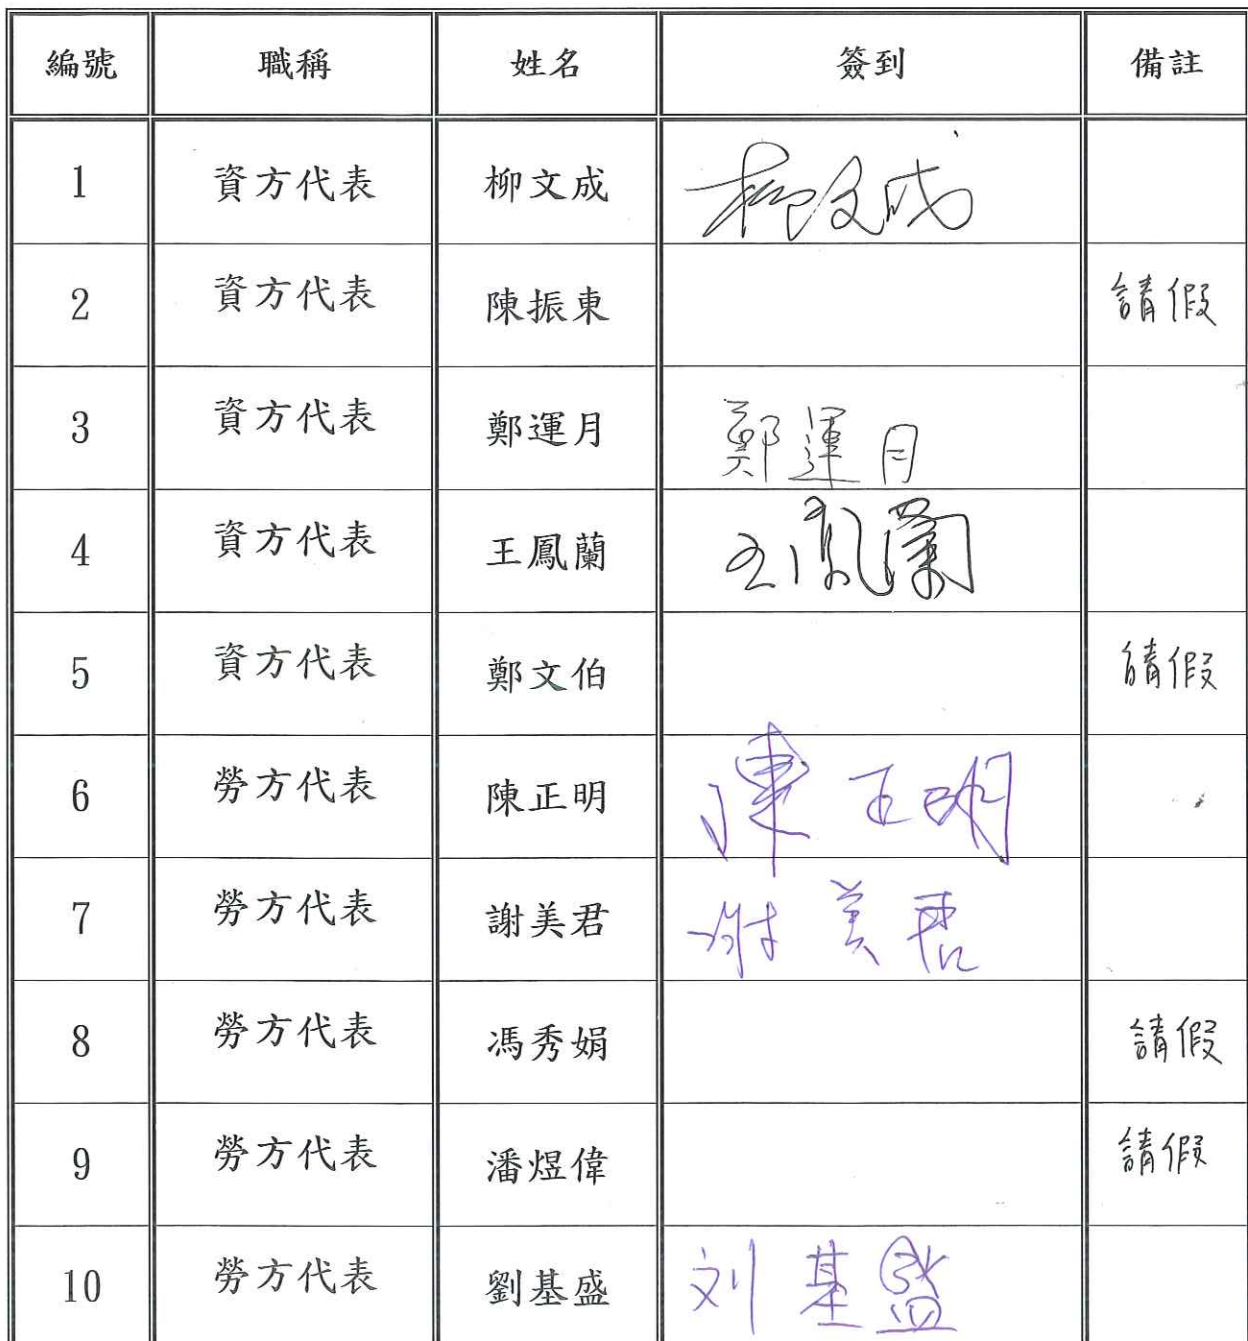 編號 職稱 姓名 簽到 備註
1 資方代表 柳文成 柳文成
2 資方代表 陳振東 請假
3 資方代表 鄭運月 鄭運月
4 資方代表 王鳳蘭 王鳳蘭
5 資方代表 鄭文伯 請假
6 勞方代表 陳正明 陳正明
7 勞方代表 謝美君 謝美君
8 勞方代表 馮秀娟 請假
9 勞方代表 潘煜偉 請假
10 勞方代表 劉基盛 刘基盛